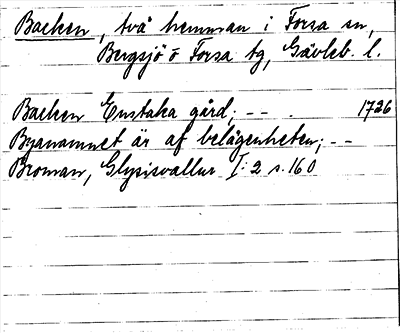 Backen, två hemman i Forsa sn,
Bergsjö o Forsa tg, Gävleb. l.
Backen Enstaka gård; -- . 1726
Byanamnet är af belägenheten; --
Broman, Glysisvallur. I: 2 s. 160